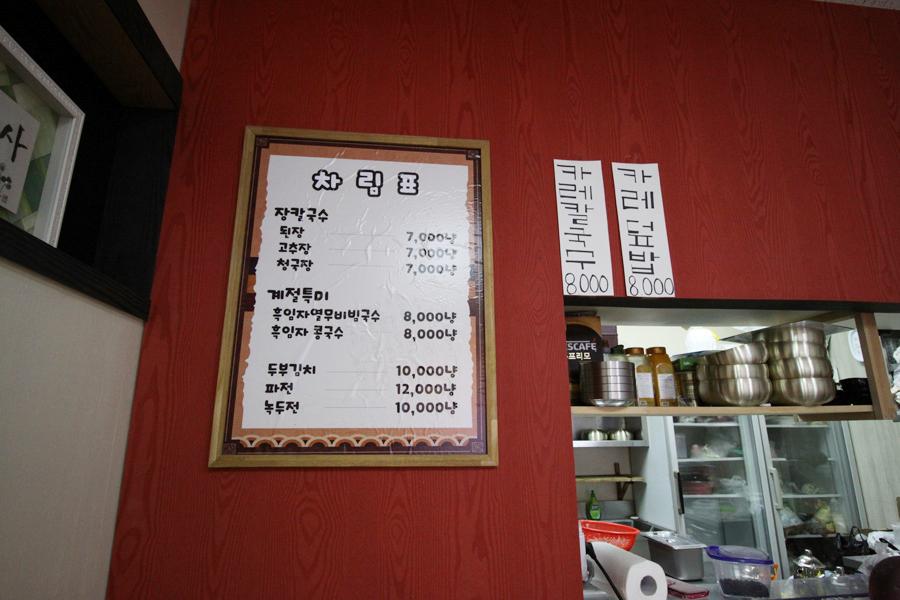 사
차림표
장칼국수
된장 7,000냥
고추장 7,000냥
청국장 7,000냥
계절특미
흑임자열무비빔국수 8,000냥
흑임자 콩국수 8,000냥
두부김치 10,000냥
파전 12,000냥
녹두전 10,000냥
카레칼국수
8000
카레덮밥
8000
SCAFE
프리모